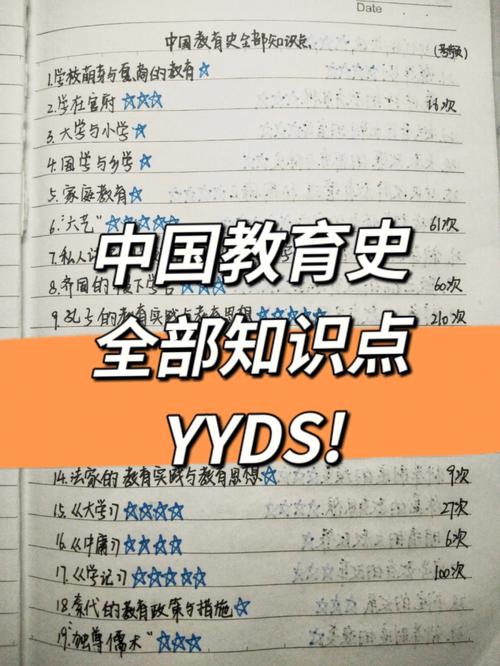 Date
中国教育史全部知识点
(考频)
1.学校萌芽与夏商的教育☆
2.学在官府☆☆☆ 16次
3.大学与小学☆
4.国学与乡学☆
5.家庭教育☆
6."六艺"☆☆☆☆☆ 61次
7.私人
8.齐国的稷下学宫☆☆☆☆ 60次
9.孔子的教育实践与教育思想☆☆☆☆☆ 210次
中国教育史
全部知识点
YYDS!
14.法家的教育实践与教育思想☆ 9次
15.《大学》☆☆☆☆ 27次
16.《中庸》☆☆☆☆ 6次
17.《学记》☆☆☆☆☆ 100次
18.秦代的教育政策与措施☆
19."独尊儒术"☆☆☆